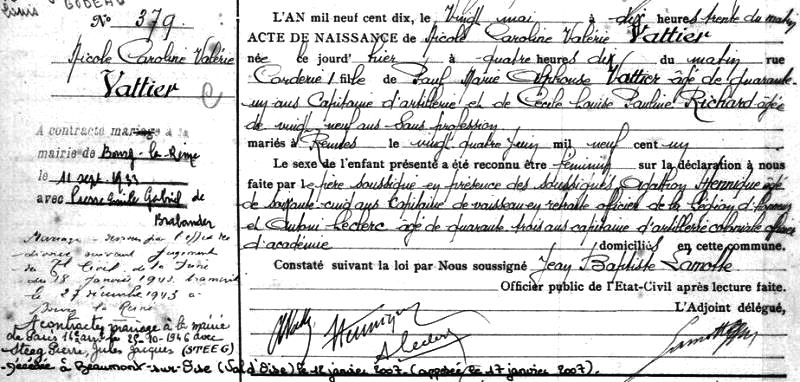 Louis GODEAU
N° 379
Nicole Caroline Valérie
Vattier
A contracté mariage à la
mairie de Bourg-la-Reine
le 11 sept. 1933
avec Pierre Emile Gabriel de
Brabander
Mariage dissous par l'effet du
divorce suivant jugement
du Civil de la Seine
du 18 janvier 1943. transcrit
le 27 décembre 1943 à
Bourg la Reine
A contracté mariage à la mairie
de Paris 16e arr. le 25-10-1946 avec
Steeg Pierre, Jules Jacques (STEEG)
décédée à Beaumont-sur-Oise (Val d'Oise) le 12 janvier 2007. (apposée le 17 janvier 2007).
L'AN mil neuf cent dix, le Vingt mai à dix heures trente du matin
ACTE DE NAISSANCE de Nicole Caroline Valérie Vattier
née ce jourd' hier à quatre heures dix du matin rue
Corderie 1 fille de Paul Marie Alphonse Vattier âgé de quarante-
un ans Capitaine d'artillerie et de Cécile Louise Pauline Richard âgée
de vingt neuf ans Sans profession
mariés à Rennes le vingt quatre juin mil neuf cent un
Le sexe de l'enfant présenté a été reconnu être féminin sur la déclaration à nous
faite par le père soussigné en présence des soussignés Agathon Hennique âgé
de soixante cinq ans Capitaine de vaisseau en retraite officier de la Légion d'honneur
et Leclerc âgé de quarante trois ans capitaine d'artillerie coloniale officier
d'académie domiciliés en cette commune.
Constaté suivant la loi par Nous soussigné Jean Baptiste Lamotte
Officier public de l'Etat-Civil après lecture faite.
L'Adjoint délégué,
Hennique
A Leclerc